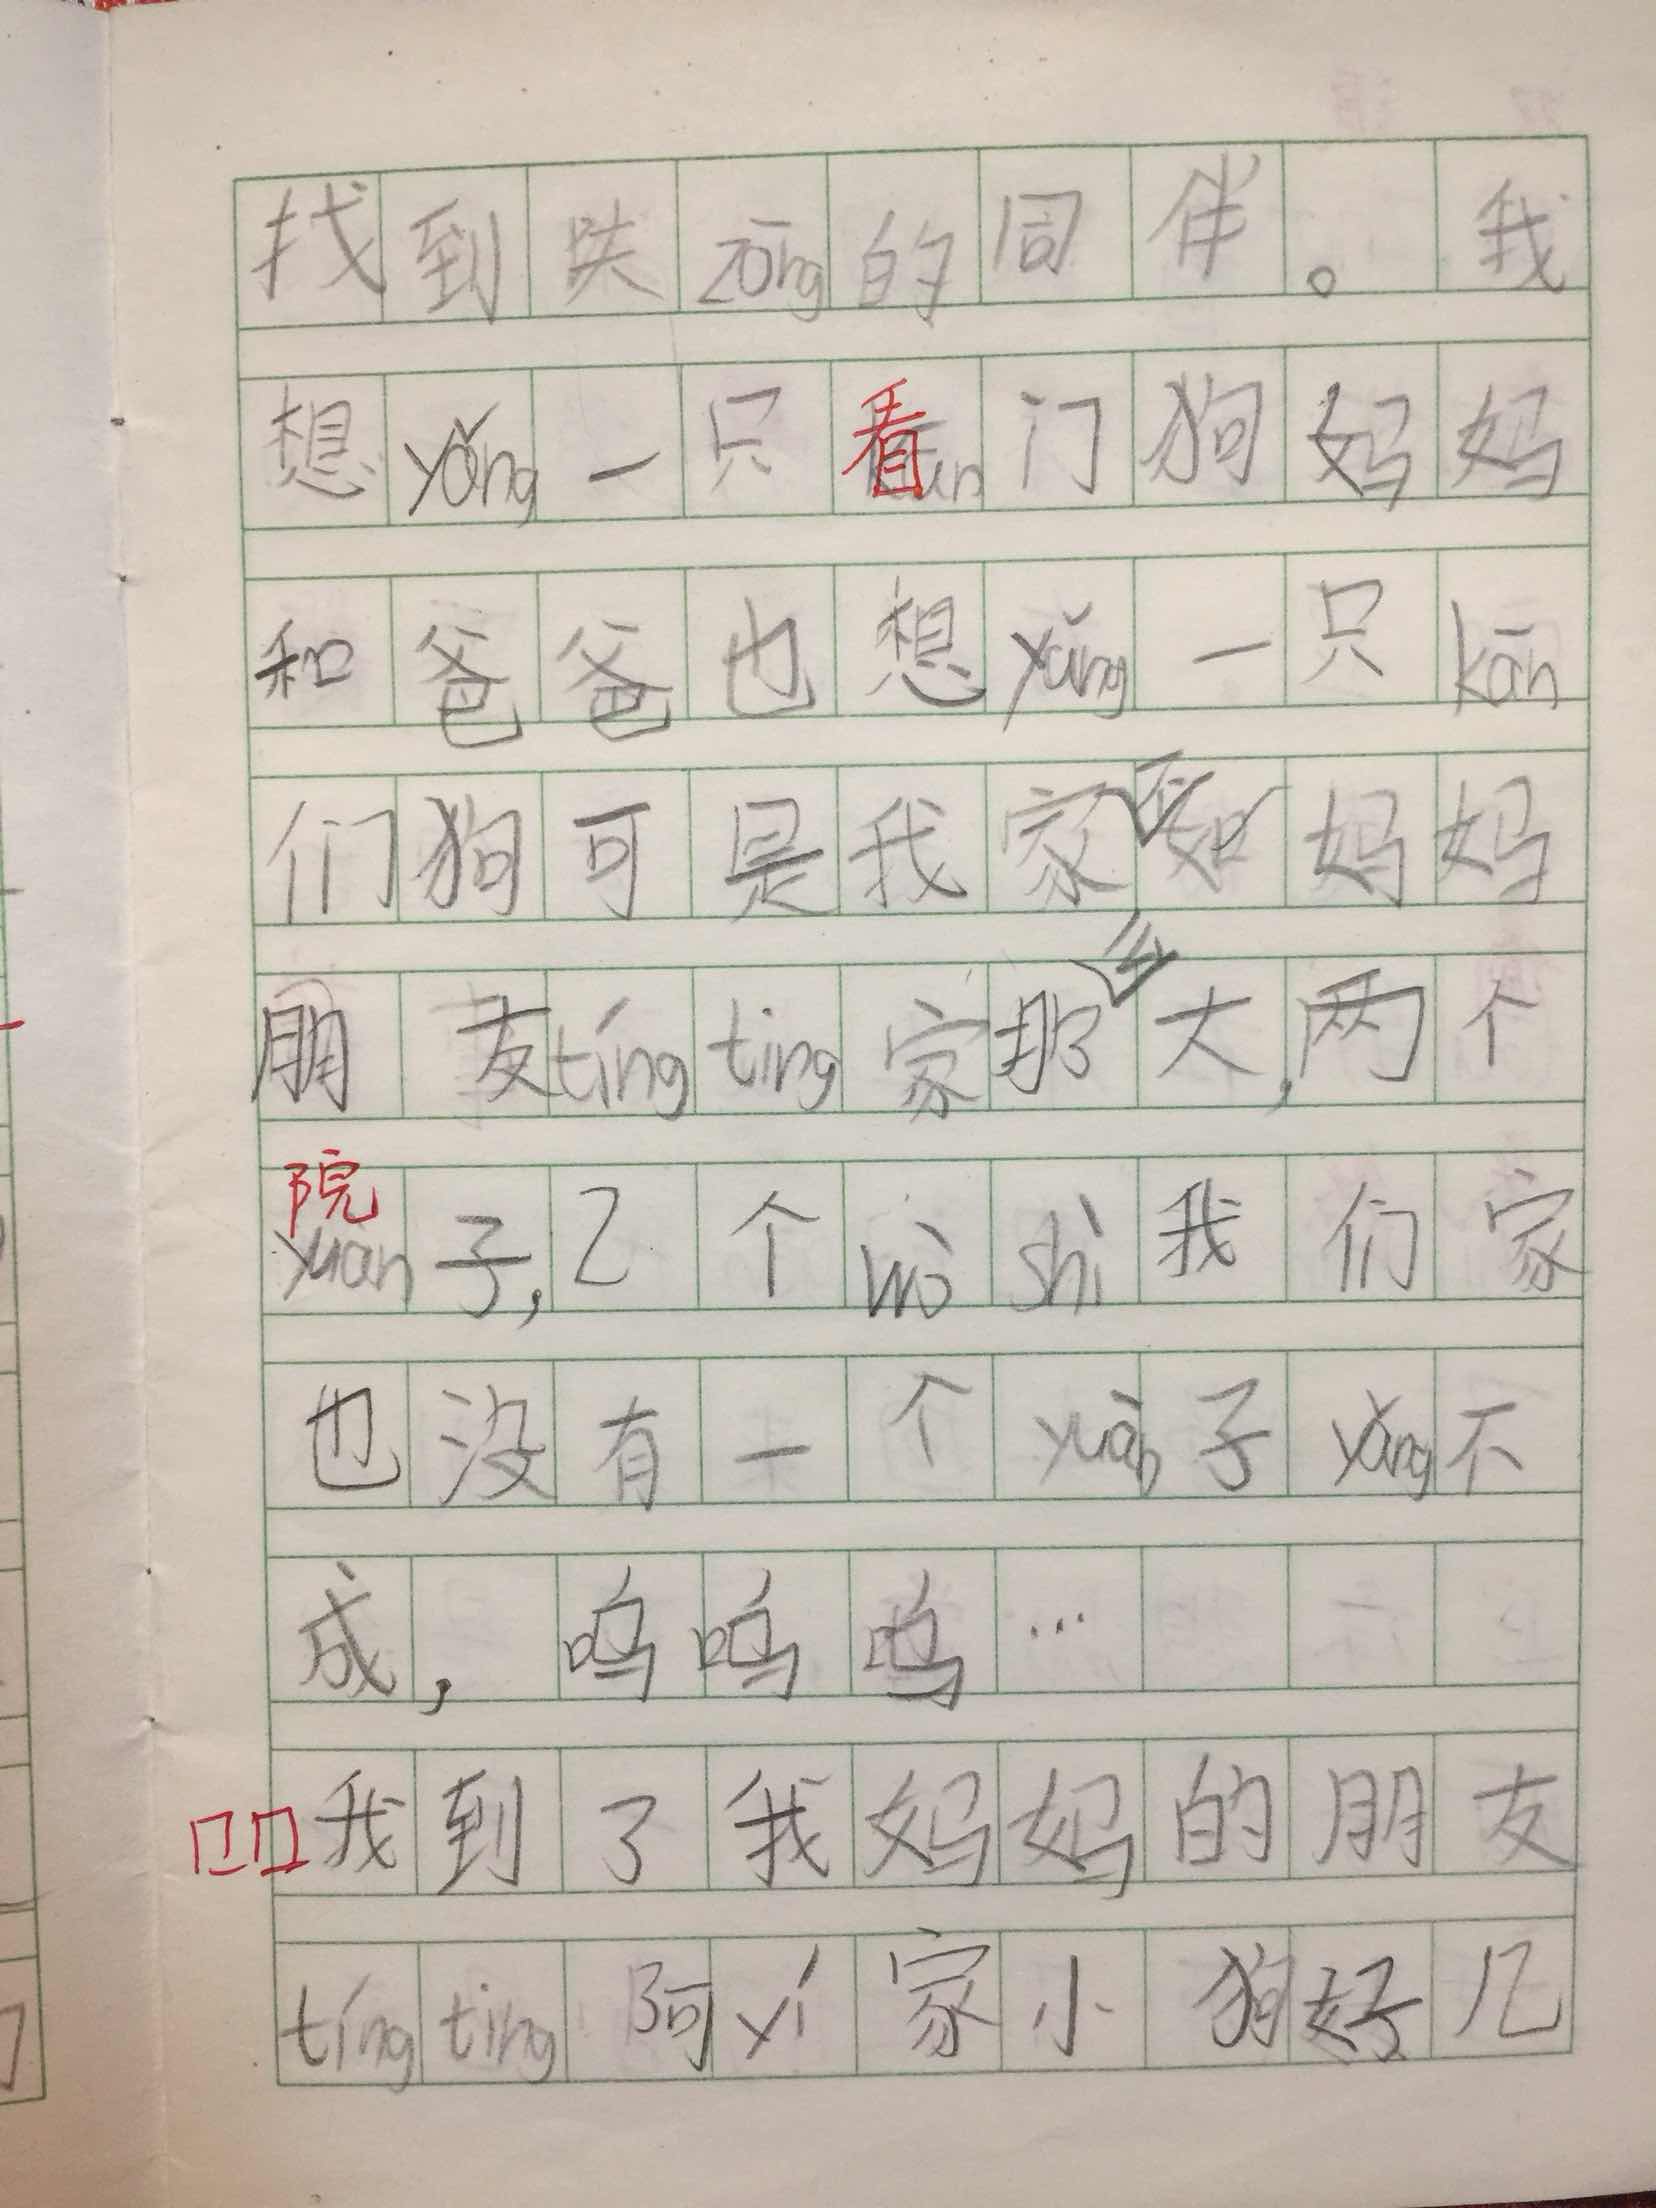 找到跌zōng的同伴。我
想yǎng一只看门狗妈妈
和爸爸也想yǎng一只kān
们狗可是我家不如妈妈
朋友tíngting家那么大,两个
院
yuan子,乙个wò shì我们家
也没有一个yuàn子yǎng不
成,呜呜呜…
我到了我妈妈的朋友
tíngting阿yí家小狗好几